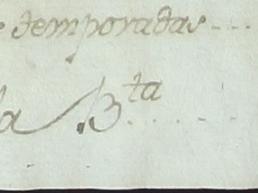 temporadas
la B.ta